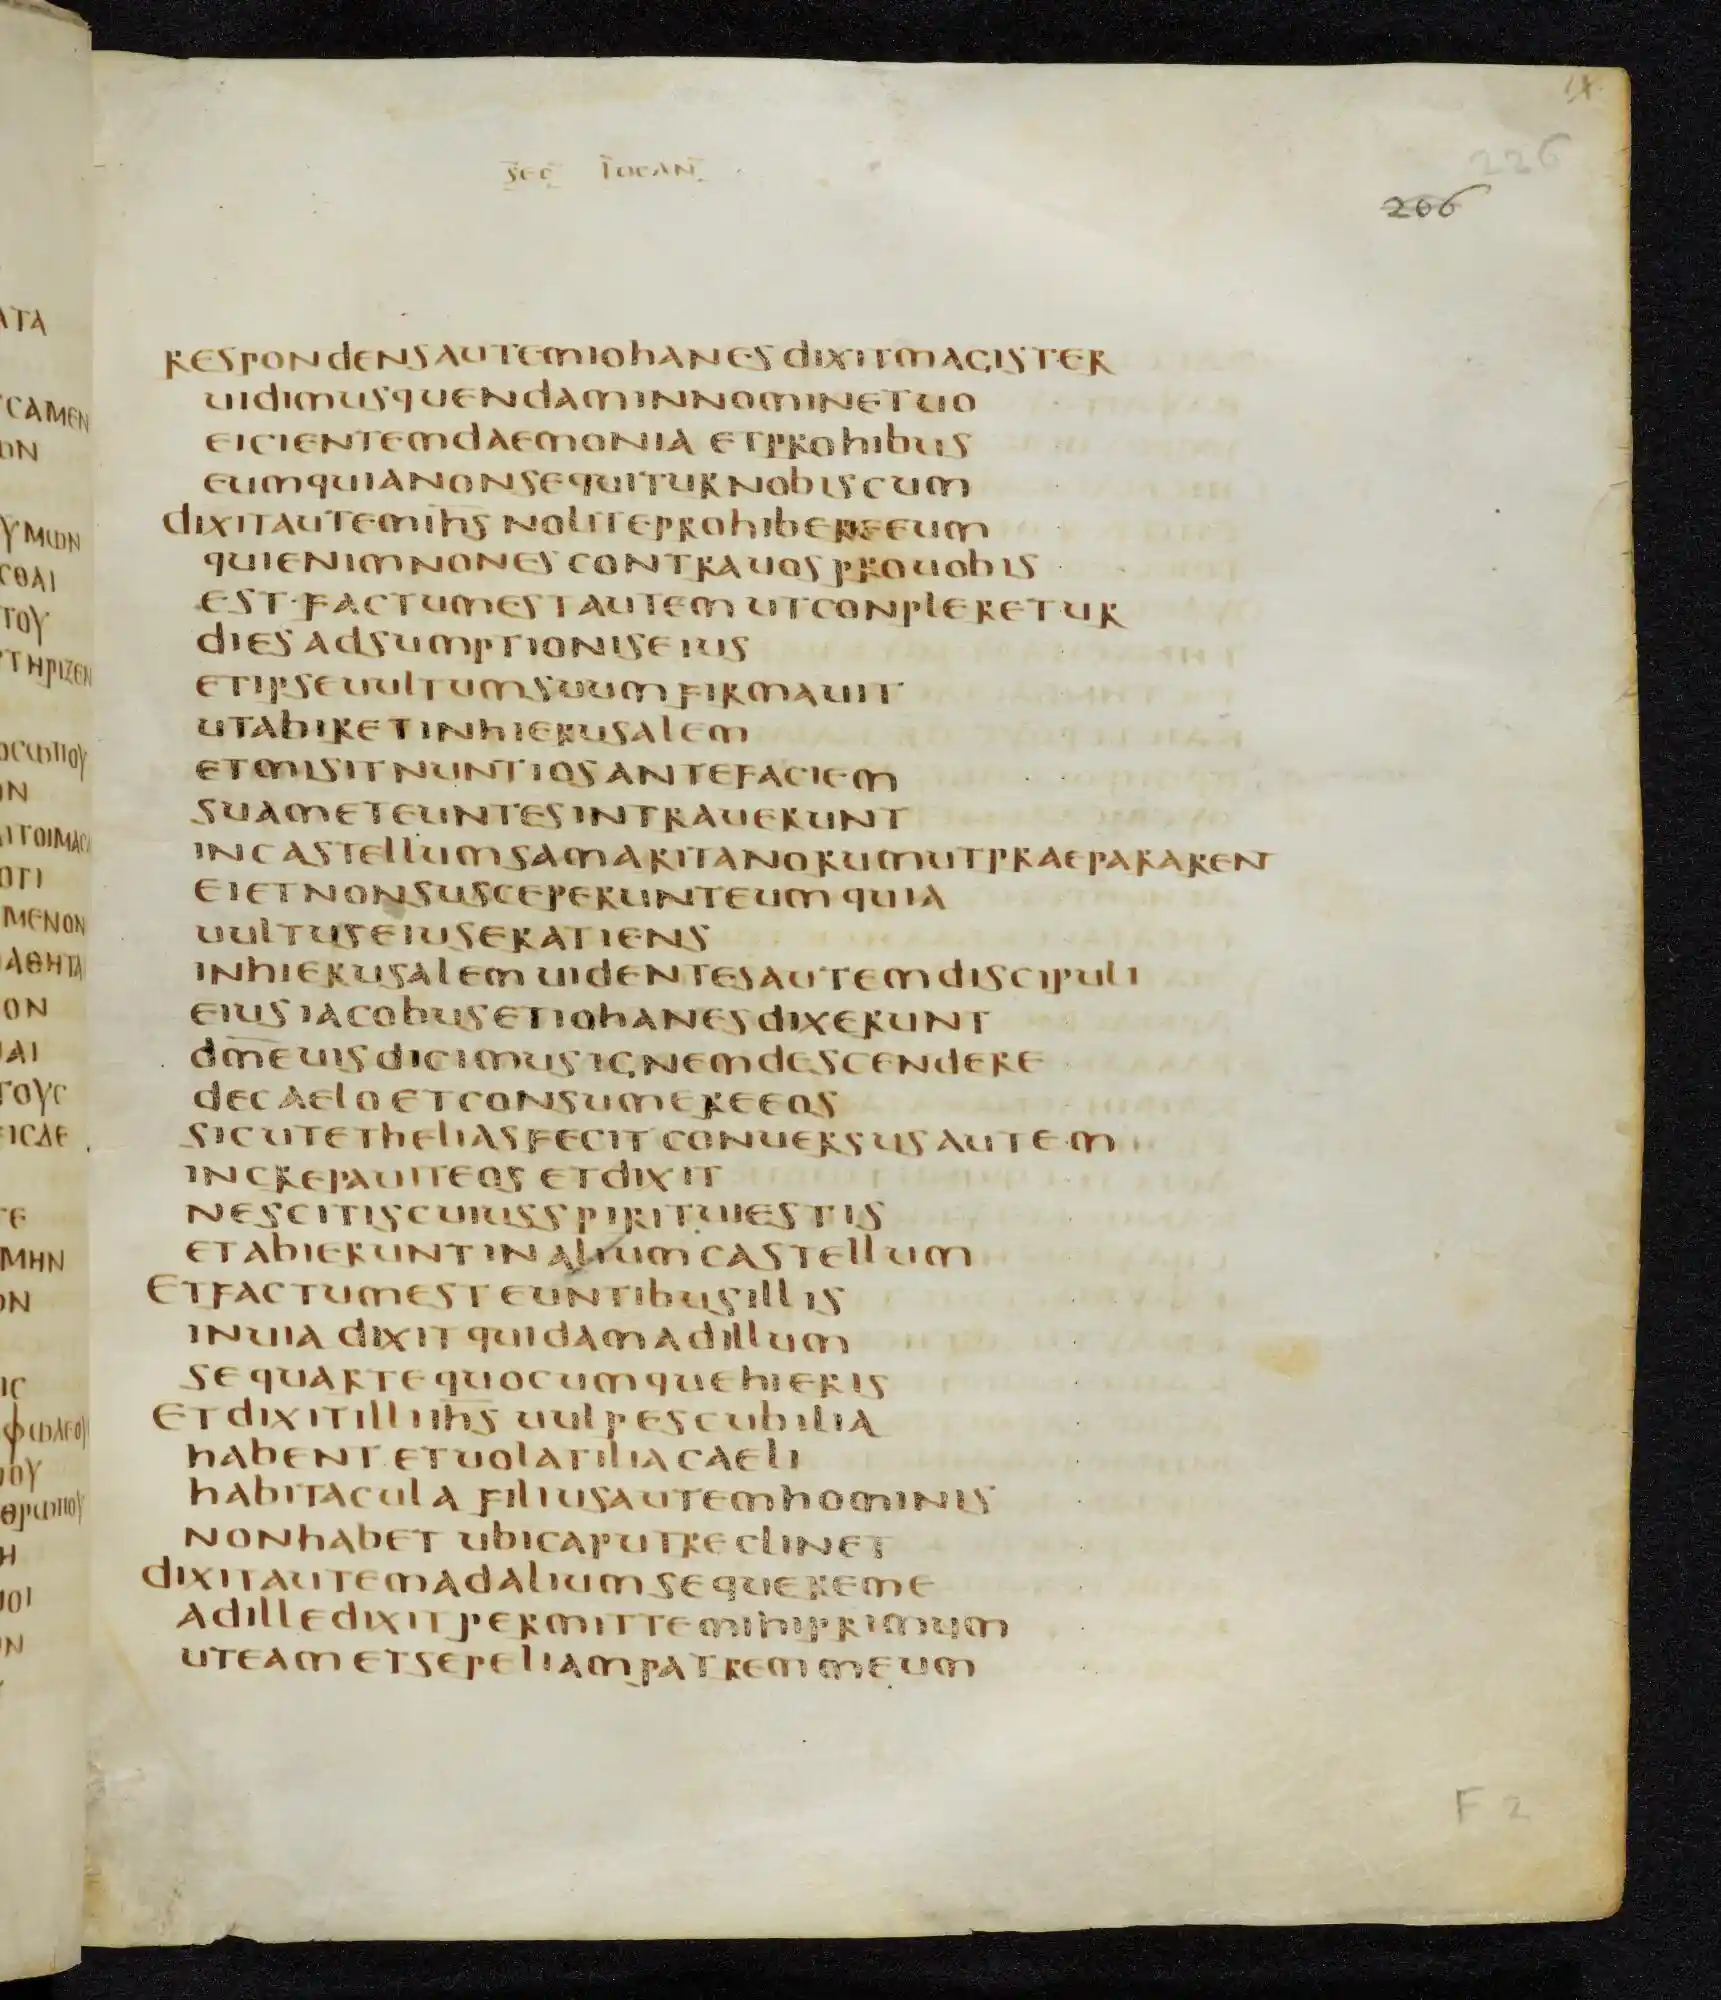 ΑΤΑ
ϹΑΜΕΝ
ΩΝ
ΥΜΩΝ
ϹΘΑΙ
ΤΟΥ
ΤΗΡΙΖΕΝ
ΟϹΩΠΟΥ
ΙΝ
ΙΤΟΙΜΑϹΑ
ΟΤΙ
ΜΕΝΟΝ
ΑΘΗΤΑ
ΙΟΝ
ΑΙ
ΤΟΥϹ
ΕΙϹΔΕ
ΤΕ
ΜΗΝ
ΟΝ
ΙϹ
ΦΩΛΕΟΥ
ΟΥ
ΘΡΩΠΟΥ
Η
ΜΟΙ
ΩΝ
SEC IOĊAN
IX
226
206
RESPONDENSAUTEMIOHANES DIXITMAGISTER
UIDIMUSQUENDAMINNOMINETUO
EICIENTEMDAEMONIA ETPROHIBUS
EUMQUIANONSEQUITURNOBISCUM
DIXITAUTEMIHS NOLITEPROHIBEREEUM
QUIENIMNONES CONTRAUOS PROUOBIS
EST·FACTUMESTAUTEM UTCONPLERETUR
DIES ADSUMPTIONISEIUS
ETIPSEUULTUMSUUM FIRMAUIT
UTABIRETINHIERUSALEM
ETMISITNUNTIOSANTEFACIEM
SUAMETEUNTESINTRAUERUNT
INCASTELLUMSAMARITANORUMUTPRAEPARAREN
EIETNONSUSCEPERUNTEUM QUIA
UULTUSEIUSERATIENS
INHIERUSALEM UIDENTESAUTEMDISCIPULI
EIUSIACOBUSETIOHANESDIXERUNT
DME UISDICIMUSIGNEMDESCENDERE
DECAELO ETCONSUMEREEOS
SICUTETHELIASFECIT CONUERSUSAUTEM
INCREPAUITEOS ETDIXIT
NESCITISCUIUSSPIRITUIESTIS
ETABIERUNTINALIUMCASTELLUM
ETFACTUMESTEUNTIBUSILLIS
INUIA DIXITQUIDAMADILLUM
SEQUARTEQUOCUMQUEHIERIS
ETDIXITILLIIHS UULPESCUBILIA
HABENT ETUOLATILIACAELI
HABITACULA FILIUSAUTEMHOMINIS
NONHABET UBICAPUTRECLINET
DIXITAUTEMADALIUMSEQUEREME
ADILLEDIXITPERMITTEMIHIPRIMUM
UTEAMETSEPELIAMPATREMMEUM
F 2